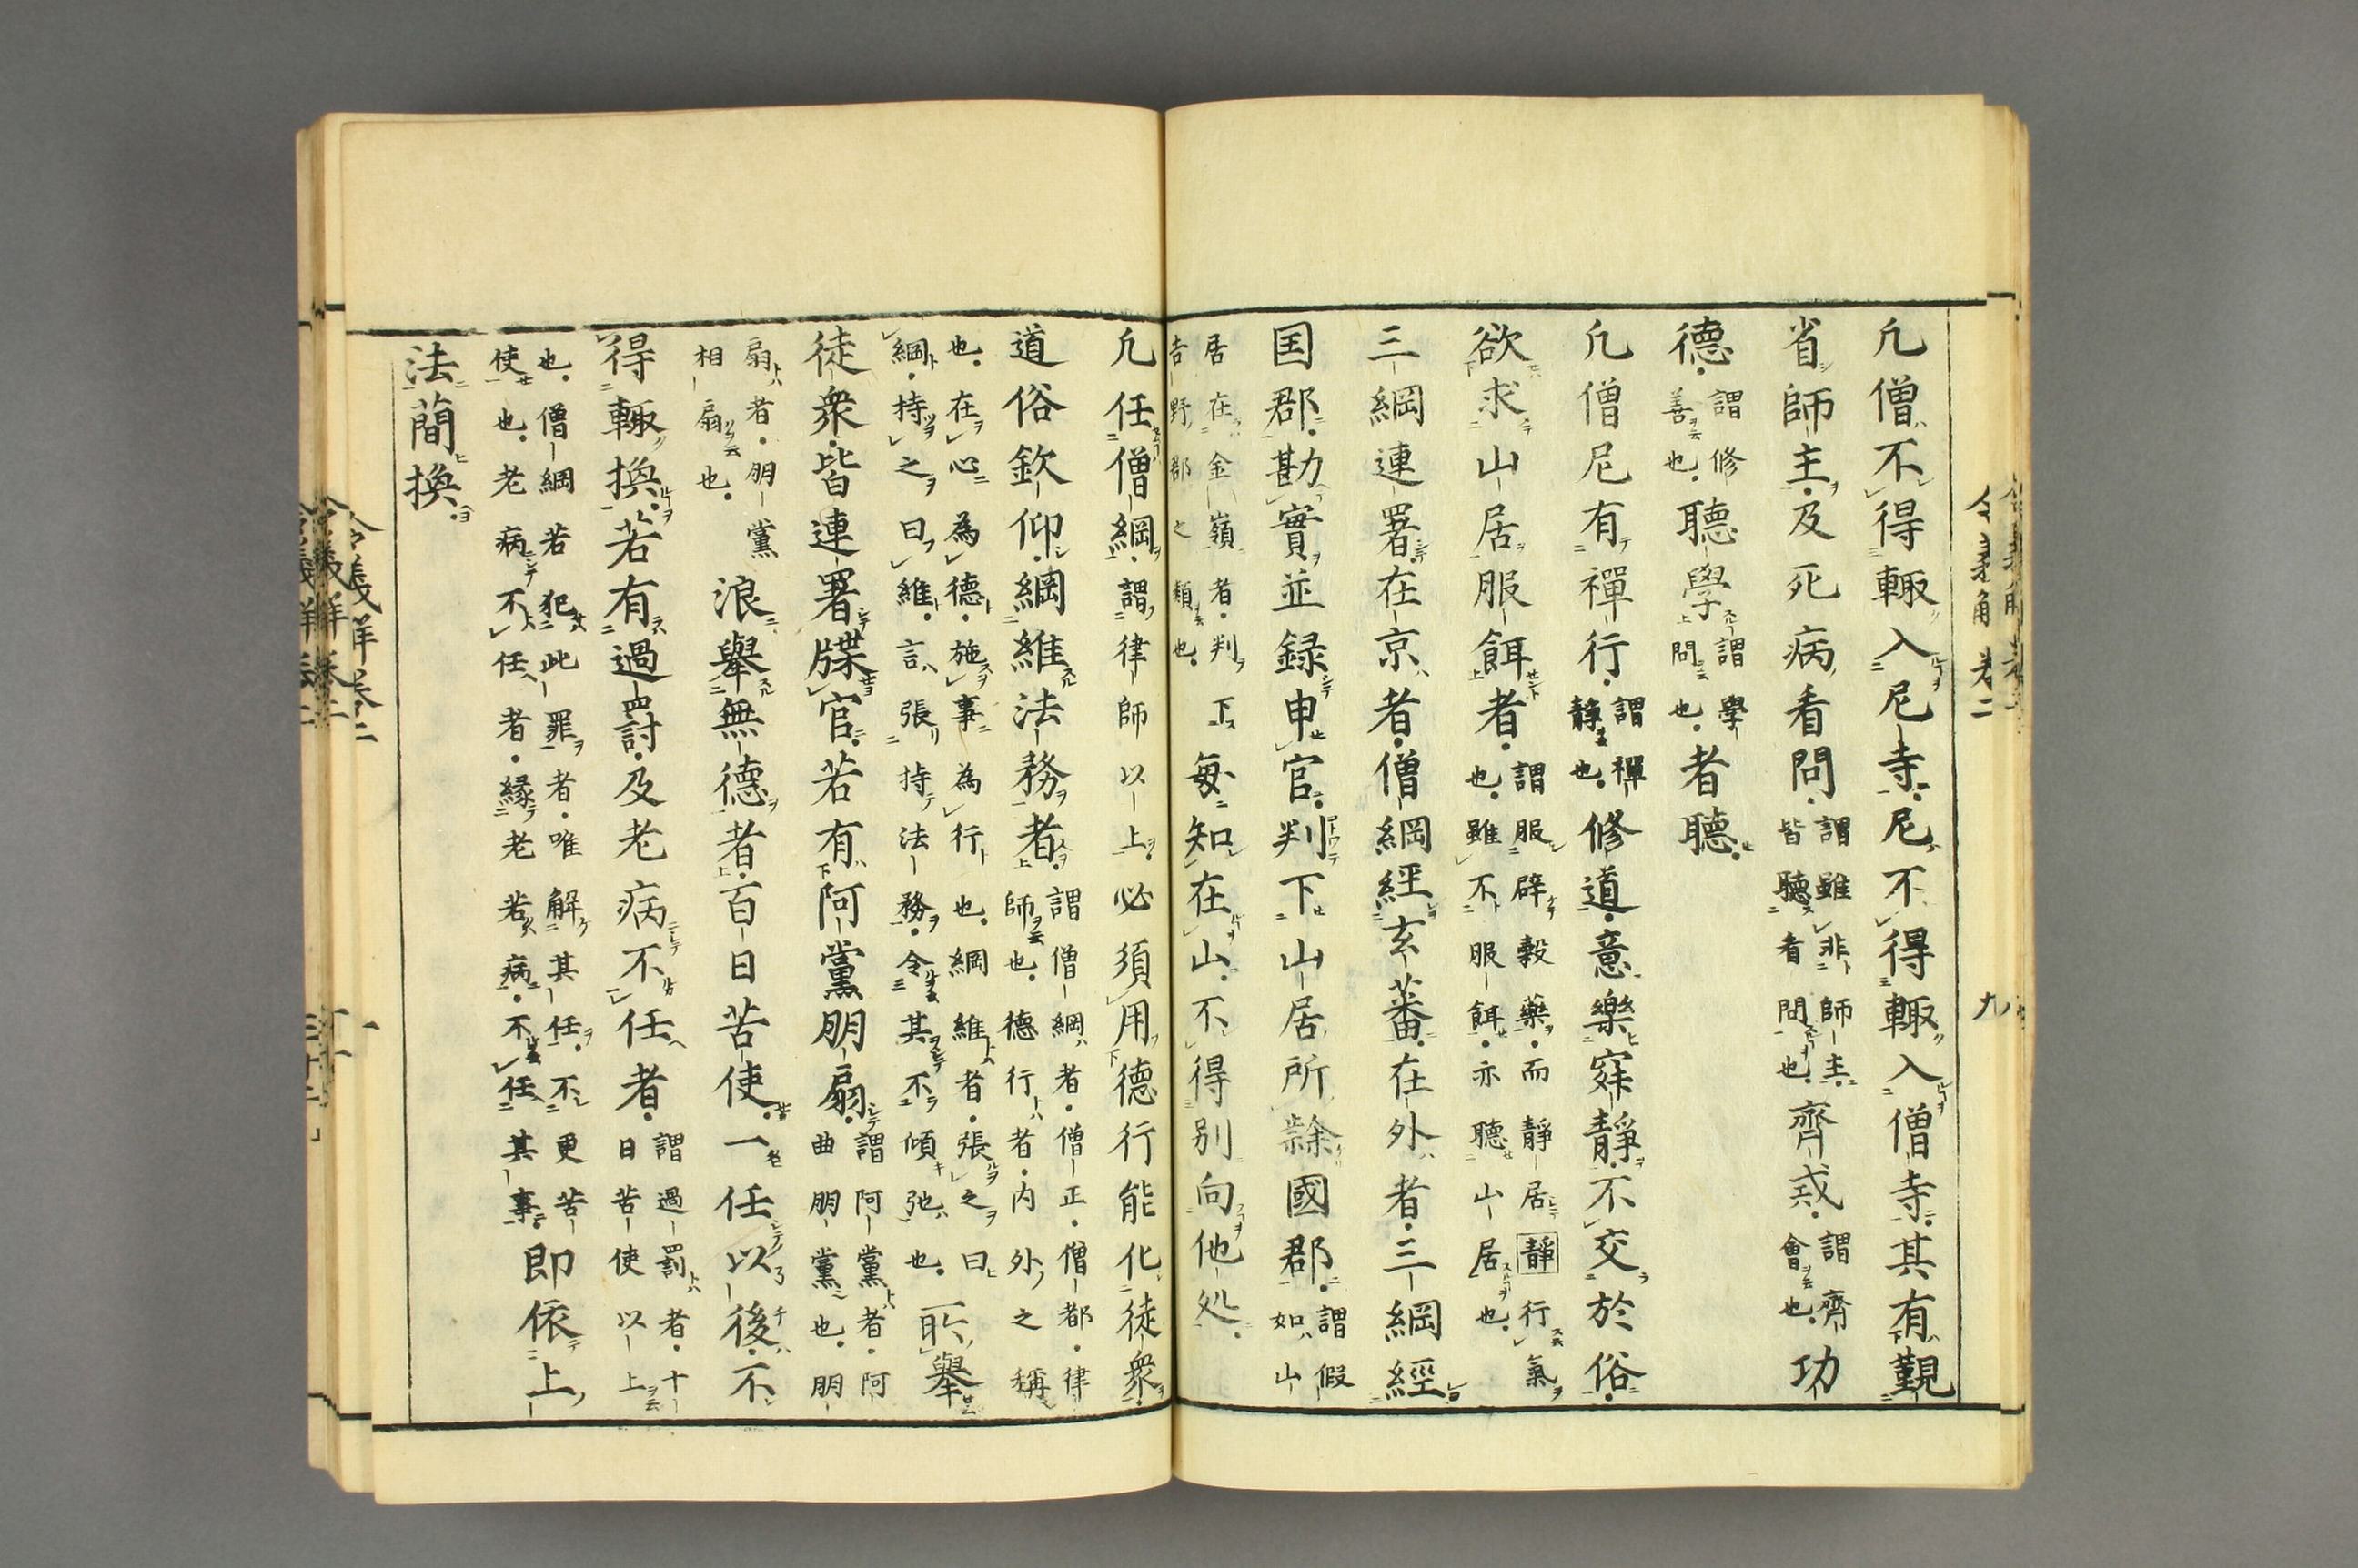 令義解卷二 九
凢僧不得輙入尼寺尼不得輙入僧寺其有覲
省師主及死病看問謂雖非師主皆聽看問也齊戒謂齊會也功
德謂修善也聽學謂學問也者聽
凢僧尼有禪行謂禪靜也修道意樂寂静不交於俗
欲求山居服餌者謂服辟穀藥而静居靜行氣也雖不服餌亦聽山居也
三綱連署在京者僧綱經玄蕃在外者三綱經
国郡勘實並録申官判下山居所隸國郡謂假如山
居在金嶺者判下吉野郡之類也毎知在山不得別向他処
凢任僧綱謂律師以上必須用德行能化徒衆
道俗欽仰綱維法務者謂僧綱者僧正僧都律師也德行者内外之稱
也在心為德施事為行也綱維者張之曰綱持之曰維言張持法務令其不傾弛也所舉
徒衆皆連署牒官若有阿黨朋扇謂阿黨者阿曲朋黨也朋
扇者朋黨相扇也浪舉無德者百日苦使一任以後不
得輙換若有過罰及老病不任者謂過罰者十日苦使以上
也僧綱若犯此罪者唯解其任不更苦使也老病不任者縁老若病不任其事即依上
法蕳換
令義解卷二